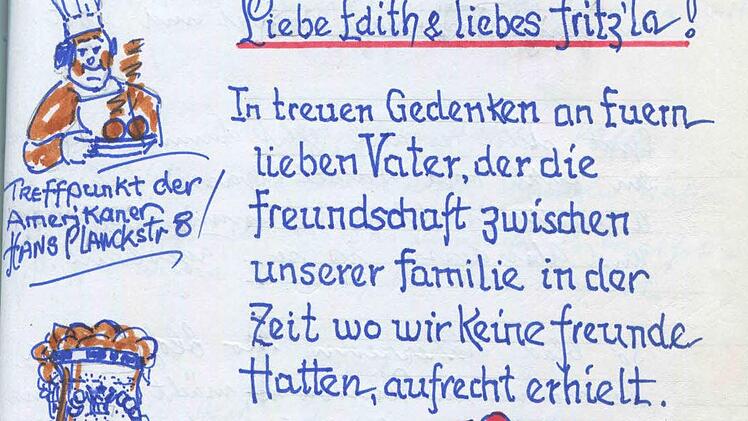 Liebe Edith & liebes Fritz'la!
In treuen Gedenken an Euern
lieben Vater, der die
Freundschaft zwischen
unserer Familie in der
Zeit wo wir Keine Freunde
Hatten, aufrecht erhielt.
Treffpunkt der
Amerikaner
HANS PLANCKstr 8